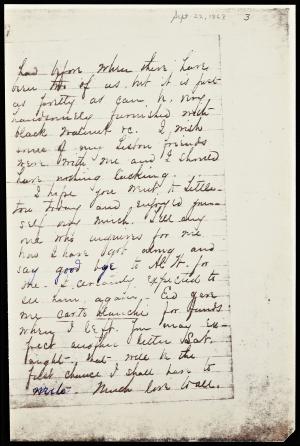 Sept. 22, 1868
3
had before when there have
been two of us, but it is just
as pretty as can be, very
handsomely furnished with
black walnut &c. I wish
some of my Lisbon friends
were with me and I should
have nothing lacking.
I hope you went to Little-
ton today and enjoyed your-
self very much. Tell any
one who inquires for me
how I have got along and
say good bye to Al H. for
me. I certainly expected to
see him again. Ed gave
me carte blanche for funds
when I left. You may ex-
pect another letter Sat.
night, that will be the
first chance I shall have to
write. Much love to all.